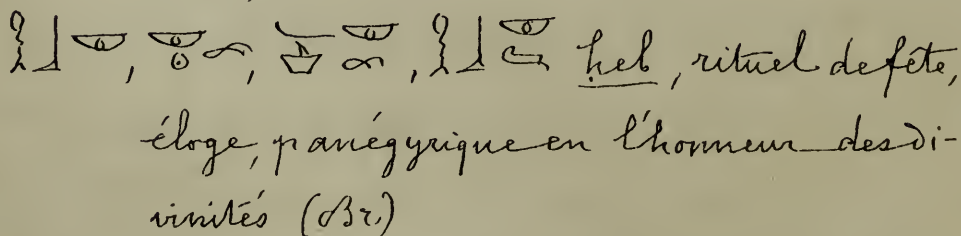 𓎛𓃀𓎱, ḥeb, rituel de fête,
éloge, panégyrique en l'honneur des di-
vinités (Br.)